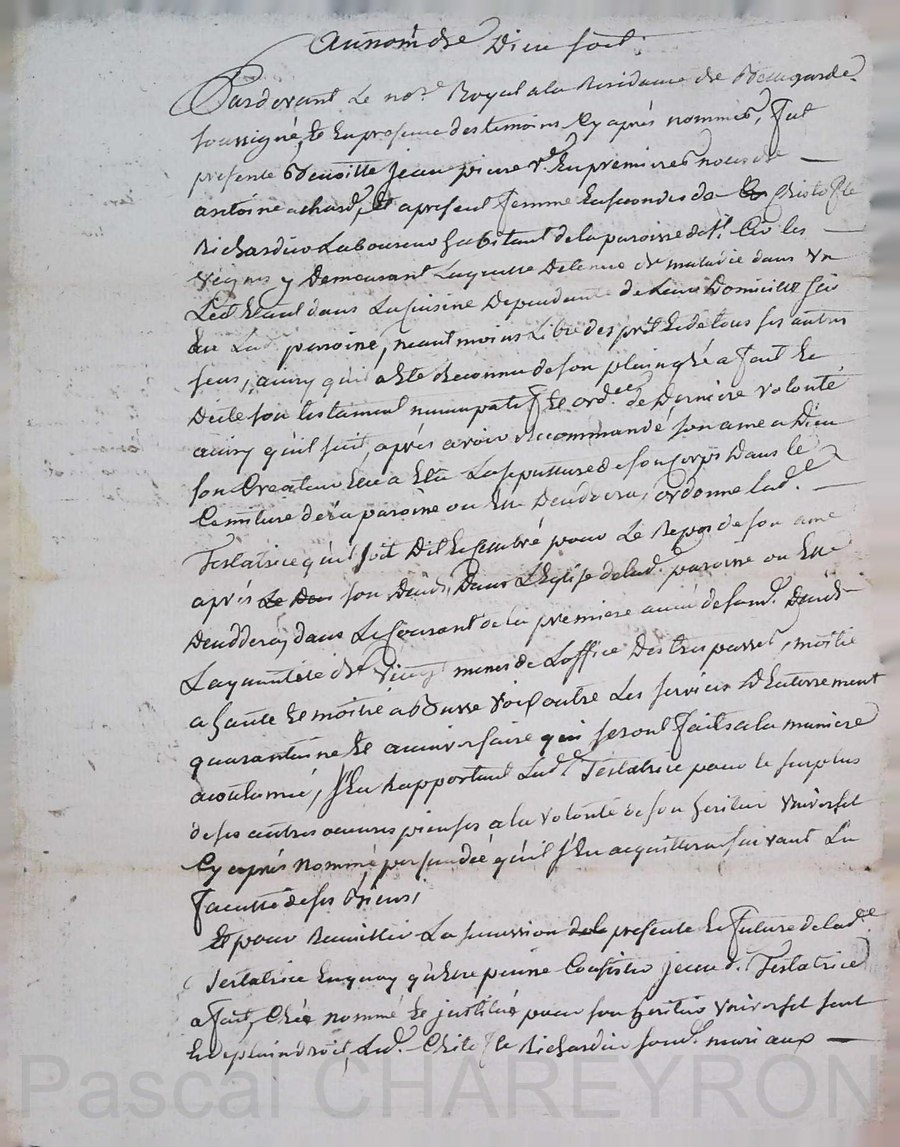 Au nom de Dieu soit
Pardevant Le no.re Royal a la Residance de Beauregard
soussigné, Et En presence des temoins Cy après nommés, fut
presente Benoitte jean pierre v.e En premieres noces de
antoine achard, Et a present femme En secondes de Christofle
Richardier Laboureur habitant de la paroisse de s.t Cir les
vignes y Demeurant Laquelle Detenue de maladie dans un
Lect Etant dans La Cuisine Dependante de Leur Domicille sis
En Lad. paroisse, neantmoins Libre d'esprit Et de tous ses autres
sens, ainsy qu'il a Eté Reconnu de son plein gré a fait Et
Dicté son testament nuncupatif Et ord.ce de Derniere volonté
ainsy qu'il suit, après avoir Recommandé son ame a Dieu
son Createur Elu a Elu La sepulture de son Corps Dans le
Cemitiere de sa paroisse ou Elle Deceddera, ordonne lad.e
Testatrice qu'il soit Dit Et Celebré pour Le Repos de son ame
après Le Dec son Decéd, Dans L'Eglise de lad. paroisse ou Elle
Deceddera, dans Le Courant de la premiere année de sond. Decéd
La quantité de Vingt messes de L'office Des trepassés, moitié
a haute Et moitié a Basse Voix outre Les services D'Enterrement
quarantaine Et anniversaire qui seront faits a la maniere
acoutumée, S'En Rapportant Lad.e Testatrice pour le surplus
de ses autres oeuvres pieuses a la volonté de son heritier Universel
Cy après nommé, persuadée qu'il s'En acquittera suivant La
faculté de ses Biens;
Et pour Recuillir La succession de la presente Et future de lad.e
Testatrice En quoy qu'Elle puisse Consister jcelle d. Testatrice
a fait, Créé nommé Et jnstitué pour son heritier Universel seul
Et de plein droit Led. Christofle Richardier sond. mari aux
Pascal CHAREYRON